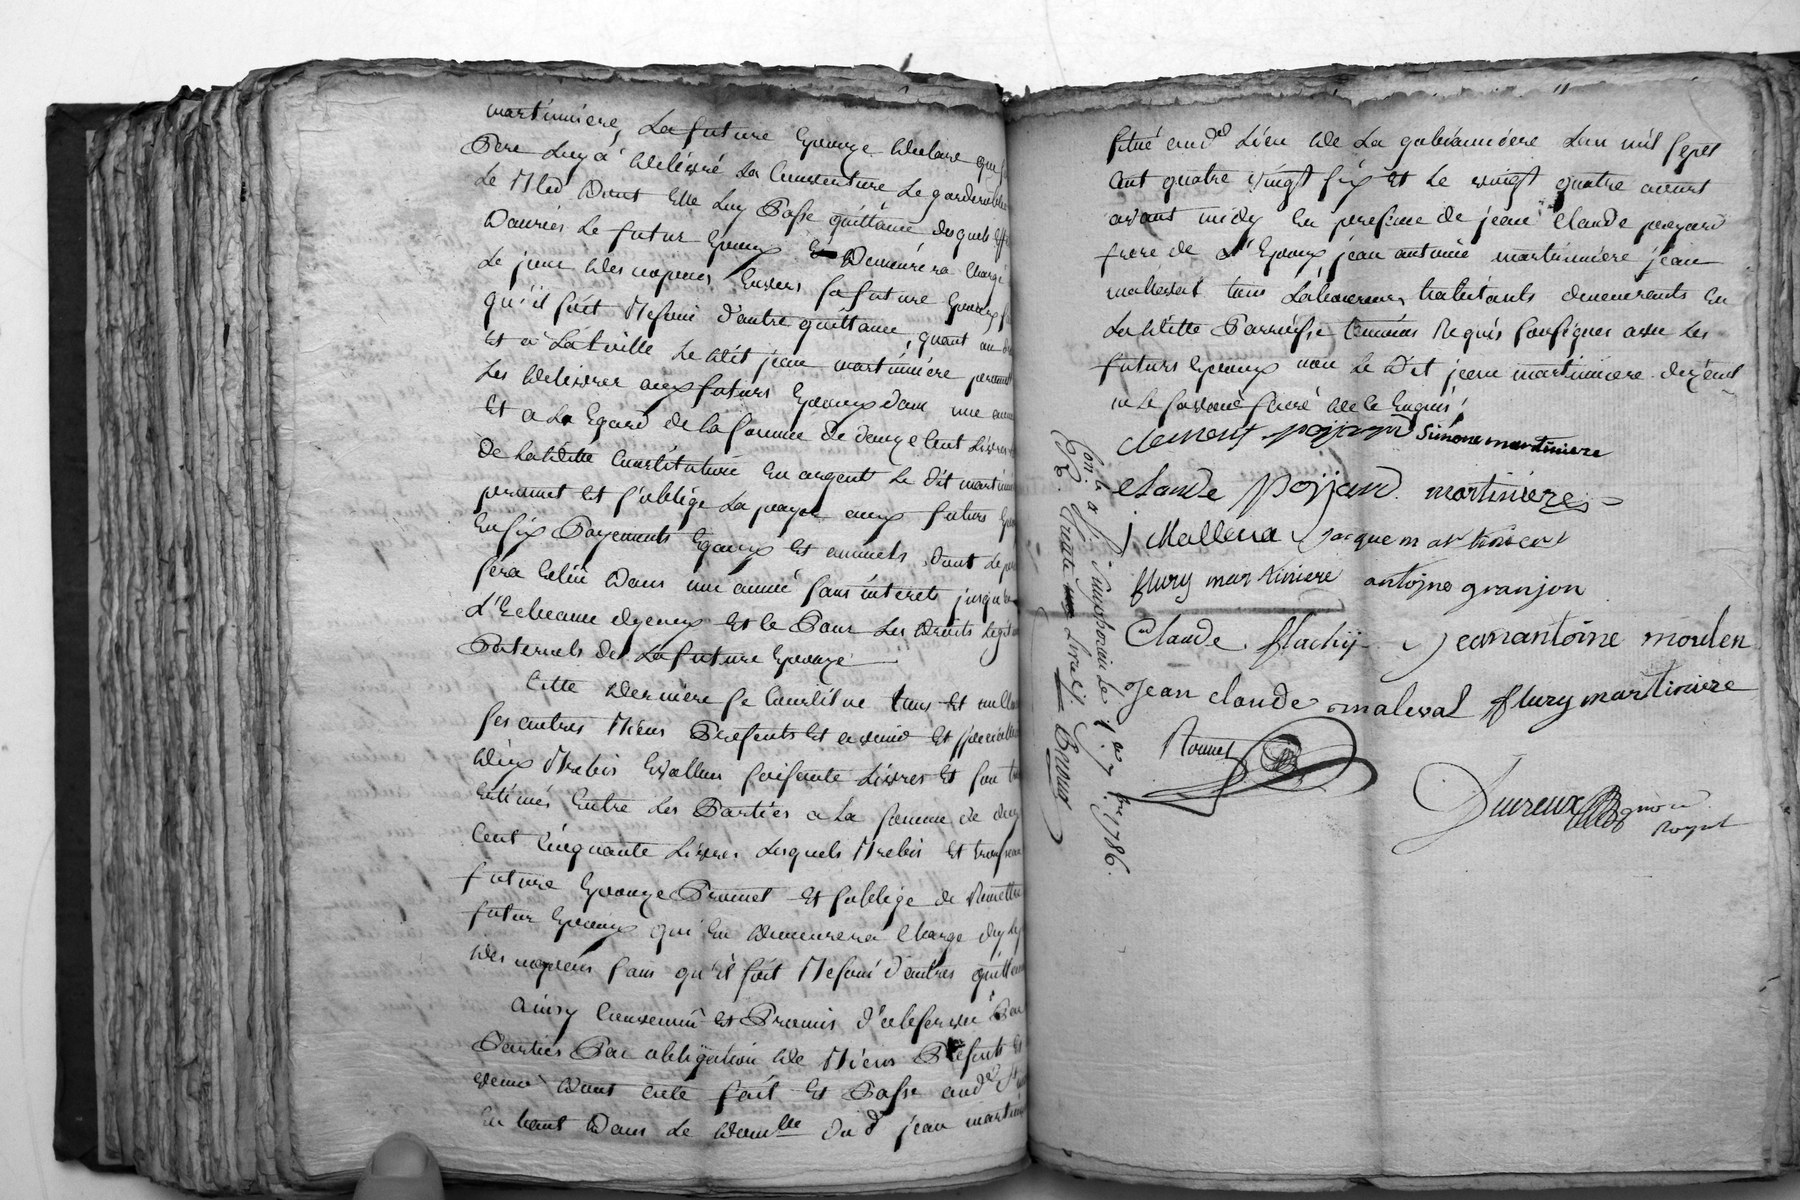 martinniere, La future Epouze declare que
Pere luy a delivré La Cousenture Le garderobbe
Le Bled Dont Elle luy Passe quittance desquels Eff
Danriés Le futur Epoux Demeurera Chargé
Le jour des nopces Envers sa future Epouze
qu'il soit Besoin d'autre quittance, quant au
Et a Latville Le dit jean martinniére promet
Les delivrer aux futurs Epoux dans une anné
Et a La Egard de la somme de deux Cent Livres
De Laditte Constitution En argent Le dit martinni
promet Et s'oblige La payer aux futurs Epoux
En six Payements Egaux Et annuels Dont Le pr
sera Echu Dans une année sans intérets jusqu'a
L'Echeance dyceux Et ce Pour Les Droits Legit
Paternels de La future Epouze
Cette Derniere se Constitue tous Et
ses autres Biens Presents Et avenir Et speciallem
Deux Brebis Evallués soisante Livres Et son tr
Estimés Entre Les Parties a La somme de deux
Cent Cinquante Livres Lesquels Brebis Et trousseau
future Epouze Promet Et s'oblige de Remettre
futur Epoux qui En Demeurera Chargé du jo
Des nopces sans qu'il soit Besoin d'autres quittance
ainsy Convenu Et Promis d'observer Par
Parties Par obligation de Biens Presents Et
venir Dont acte fait Et Passé aud.
En haut Dans Le Domlle Du d jean martinni
situé aud Lieu de La L'an mil sept
Cent quatre vingt six Et Le vingt quatre aoust
avant midy En presence de jean Claude poyard
frere de L'Epoux jean antoine martinniére jean
mallevat tous Laboureurs, habitants demeurants En
La ditte Parroisse temoins Requis soussignes avec Les
futurs Epoux non Le Dit jean martinniere dizant
ne Le savoir faire de ce Enquis /
clement poyjard Simone martiniere
claude poyjard. martiniere
j Mallevat Jacque martiniere
flury martiniere antoine granjon
Claude flachy Jeanantoine moulen
Jean claude maleval flury martiniere
Bonnet
Duvreux
Royal
Con.lé a St Simphorien Le 1er 7bre 1786.